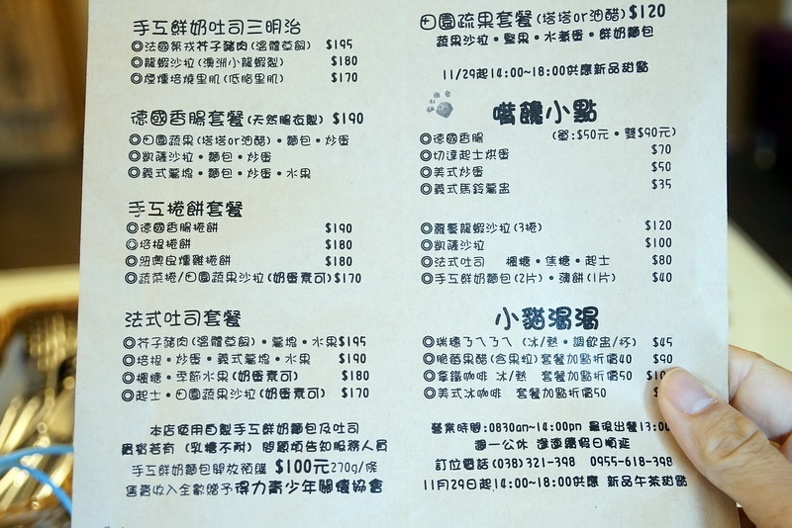 手工鮮奶吐司三明治
◎法國第戎芥子豬肉(溫體草飼) $195
◎龍蝦沙拉(澳洲小龍蝦製) $180
◎煙燻培燒里肌(低脂里肌) $170
德國香腸套餐(天然腸衣製) $190
◎田園蔬果(塔塔or油醋)•麵包•炒蛋
◎凱薩沙拉•麵包•炒蛋
◎義式薯塊•麵包•炒蛋•水果
手工捲餅套餐
◎德國香腸捲餅 $190
◎培根捲餅 $180
◎紐奧良燻雞捲餅 $180
◎蔬菜捲/田園蔬果沙拉(奶蛋素可)$170
法式吐司套餐
◎芥子豬肉(溫體草飼)•薯塊•水果$195
◎培根•炒蛋•義式薯塊•水果 $190
◎楓糖•季節水果(奶蛋素可) $180
◎起士•田園蔬果沙拉(奶蛋素可) $170
本店使用自製手工鮮奶麵包及吐司
貴賓若有(乳糖不耐)問題煩告知服務人員
手工鮮奶麵包開放預購 $100元270g/條
售賣收入全數贈予得力青少年關懷協會
田園蔬果套餐(塔塔or油醋)$120
蔬果沙拉•堅果•水煮蛋•鮮奶麵包
11/29起14:00~18:00供應新品甜點
嘴饞小點
◎德國香腸 (單:$50元•雙$90元)
◎切達起士烘蛋 $70
◎美式炒蛋 $50
◎義式馬鈴薯盅 $35
◎蘿蔓龍蝦沙拉(3捲) $120
◎凱薩沙拉 $100
◎法式吐司 楓糖•焦糖•起士 $80
◎手工鮮奶麵包(2片)•薄餅(1片) $40
小貓渴渴
◎瑞穗ㄋㄟㄋㄟ(冰/熱•調飲盅/杯) $45
◎脆莓果醋(含果粒)套餐加點折價40 $90
◎拿鐵咖啡 冰/熱 套餐加點折價50 $10
◎美式冰咖啡 套餐加點折價50 $
營業時間:0830am~14:00pm 最後出餐13:00
週一公休 逢連續假日順延
訂位電話(038)321-398 0955-618-398
11月29日起14:00~18:00共應 新品午茶甜點